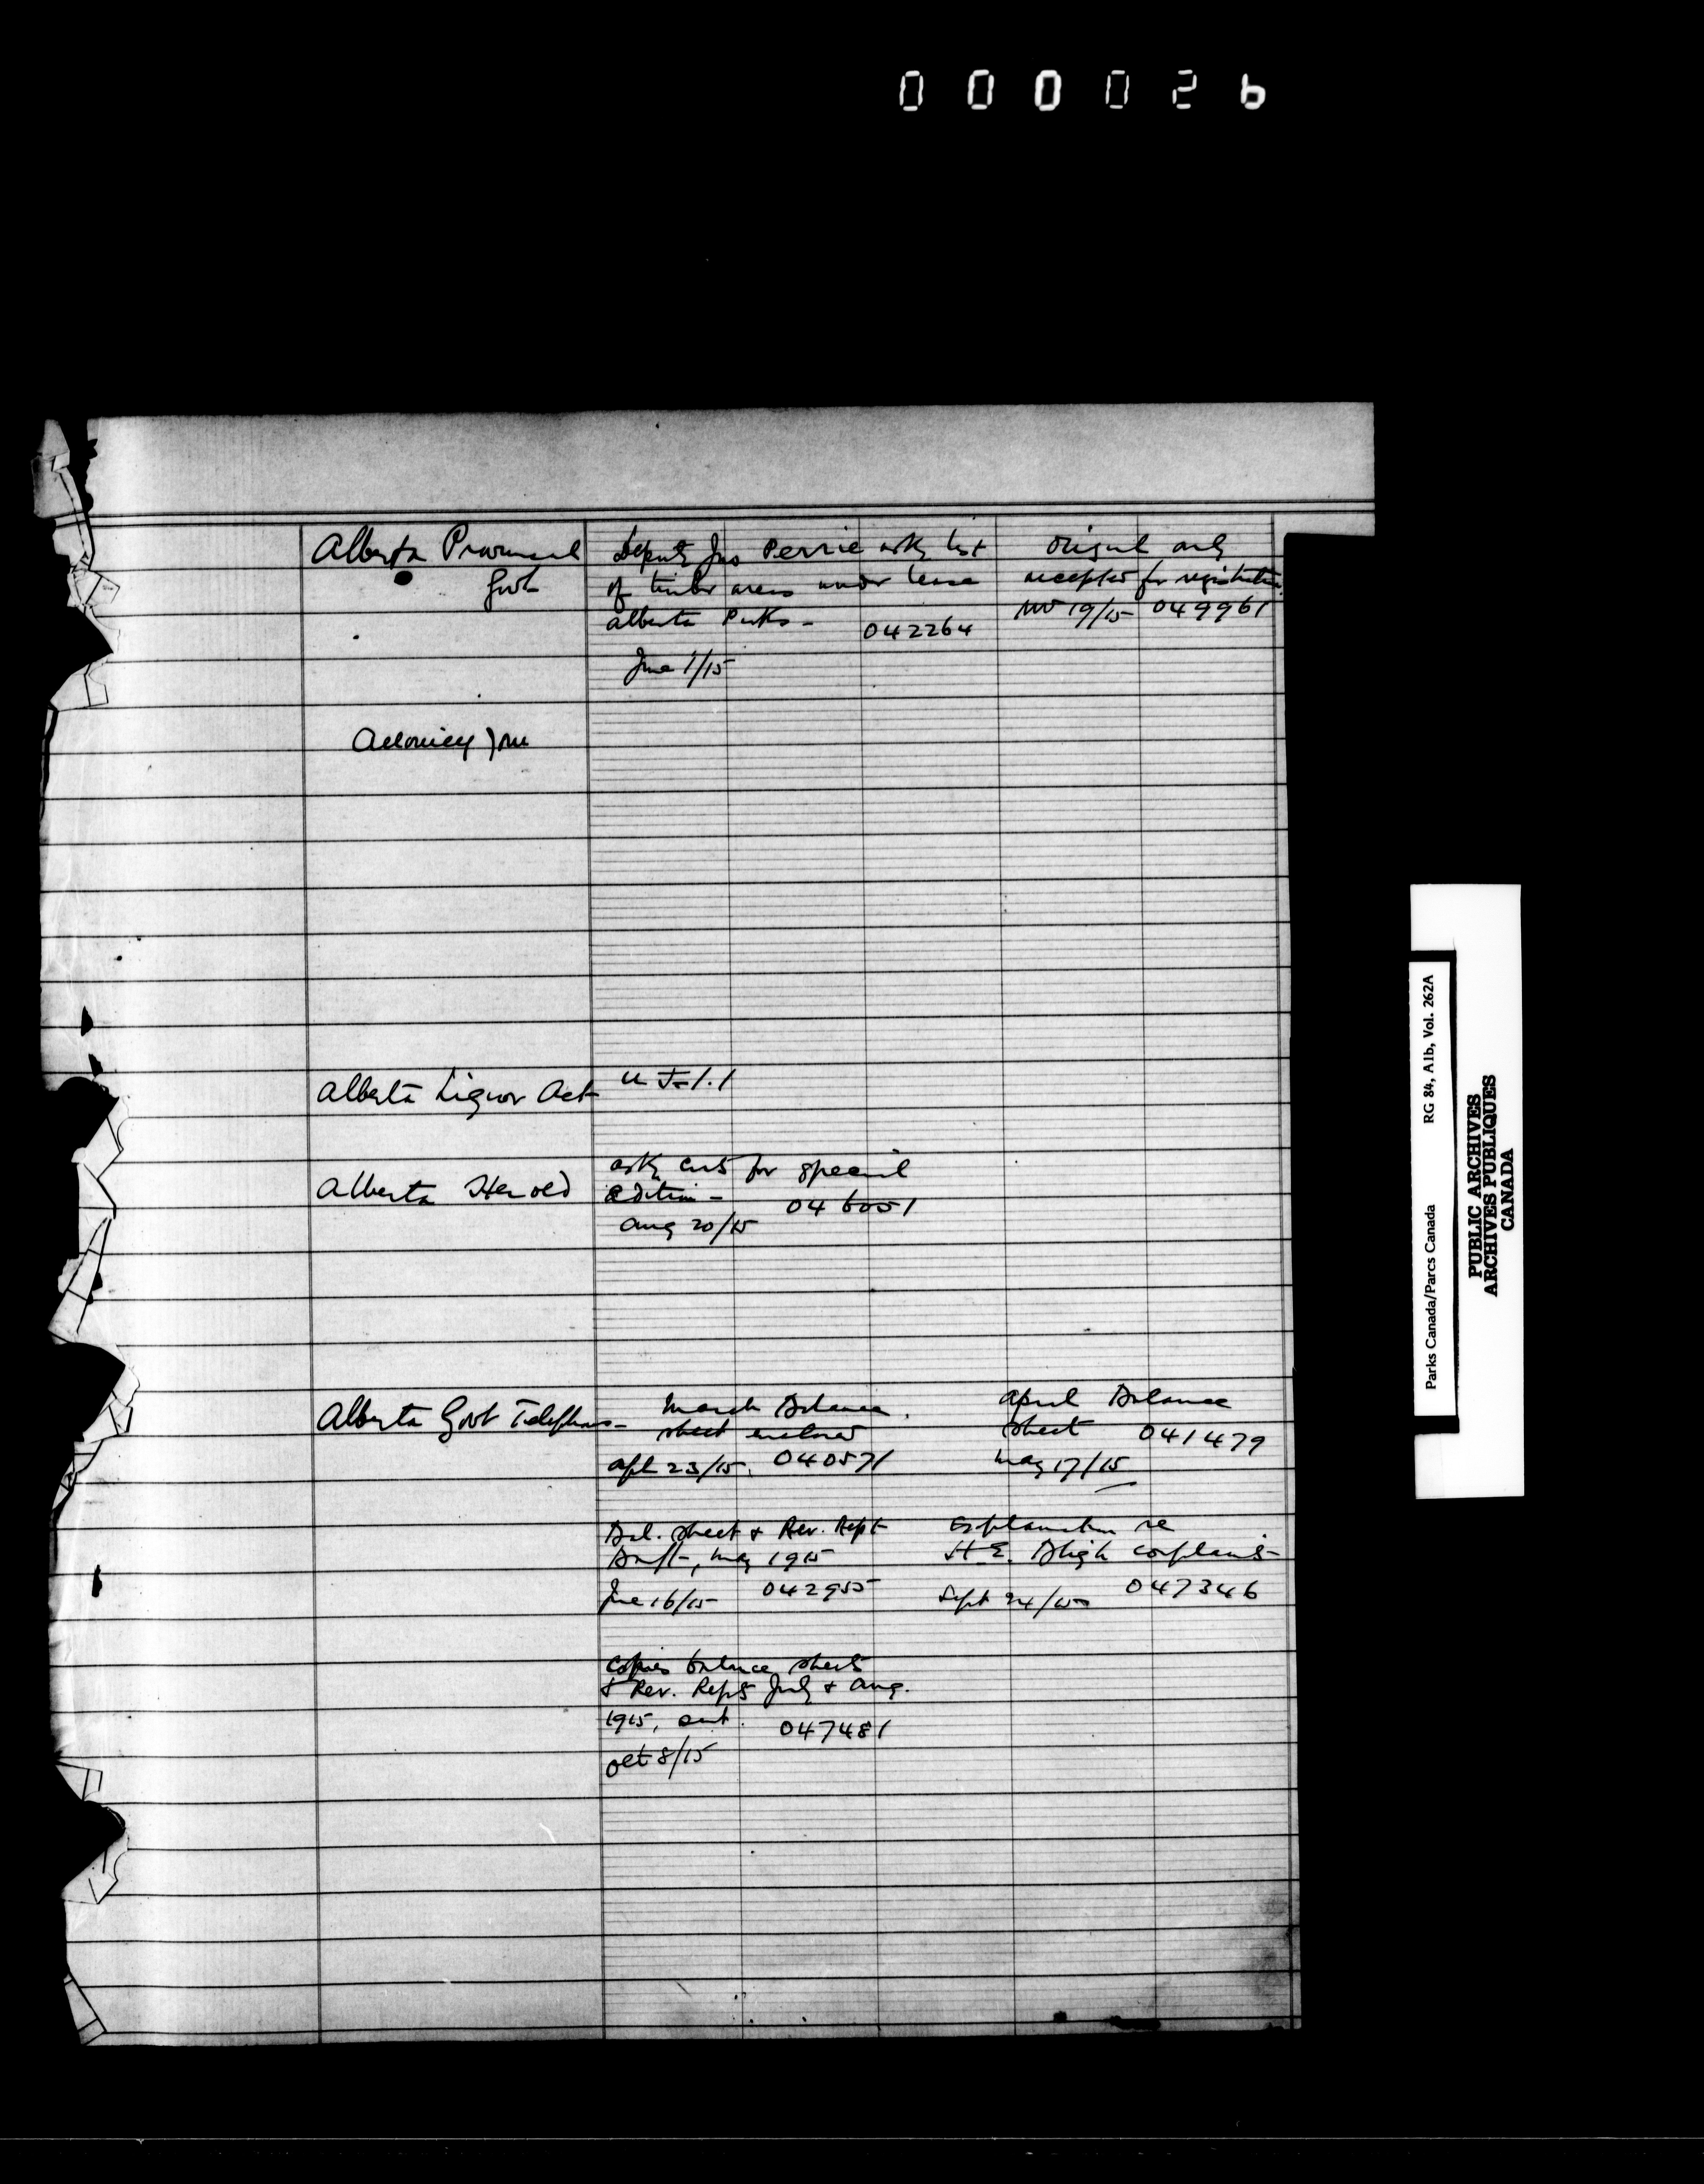 000026
Alberta Provincial
Govt
Deputy Jno Perrie asks list
of timber areas under lease
Alberta Parks -
042264
June 1/15
Original only
accepted for registration.
Nov 19/15 049961
Alberta Liquor Act
U J-1.1
Alberta Herold
asks cuts for special
edition -
046051
Aug 20/15
Alberta Govt Telephones -
March Balance
sheet enclosed
Apl 23/15. 040571
April Balance
sheet 041479
May 17/15
Bal. sheet & Rev. Rept
Banff, May 1915
June 16/15 042955
Explanation re
H.E. Bligh complaint
Sept 24/15 047346
Copies balance sheets
& Rev. Repts July & Aug.
1915, sent.
047481
Oct 8/15
Parks Canada/Parcs Canada RG 84, A1b, Vol. 262A
PUBLIC ARCHIVES
ARCHIVES PUBLIQUES
CANADA